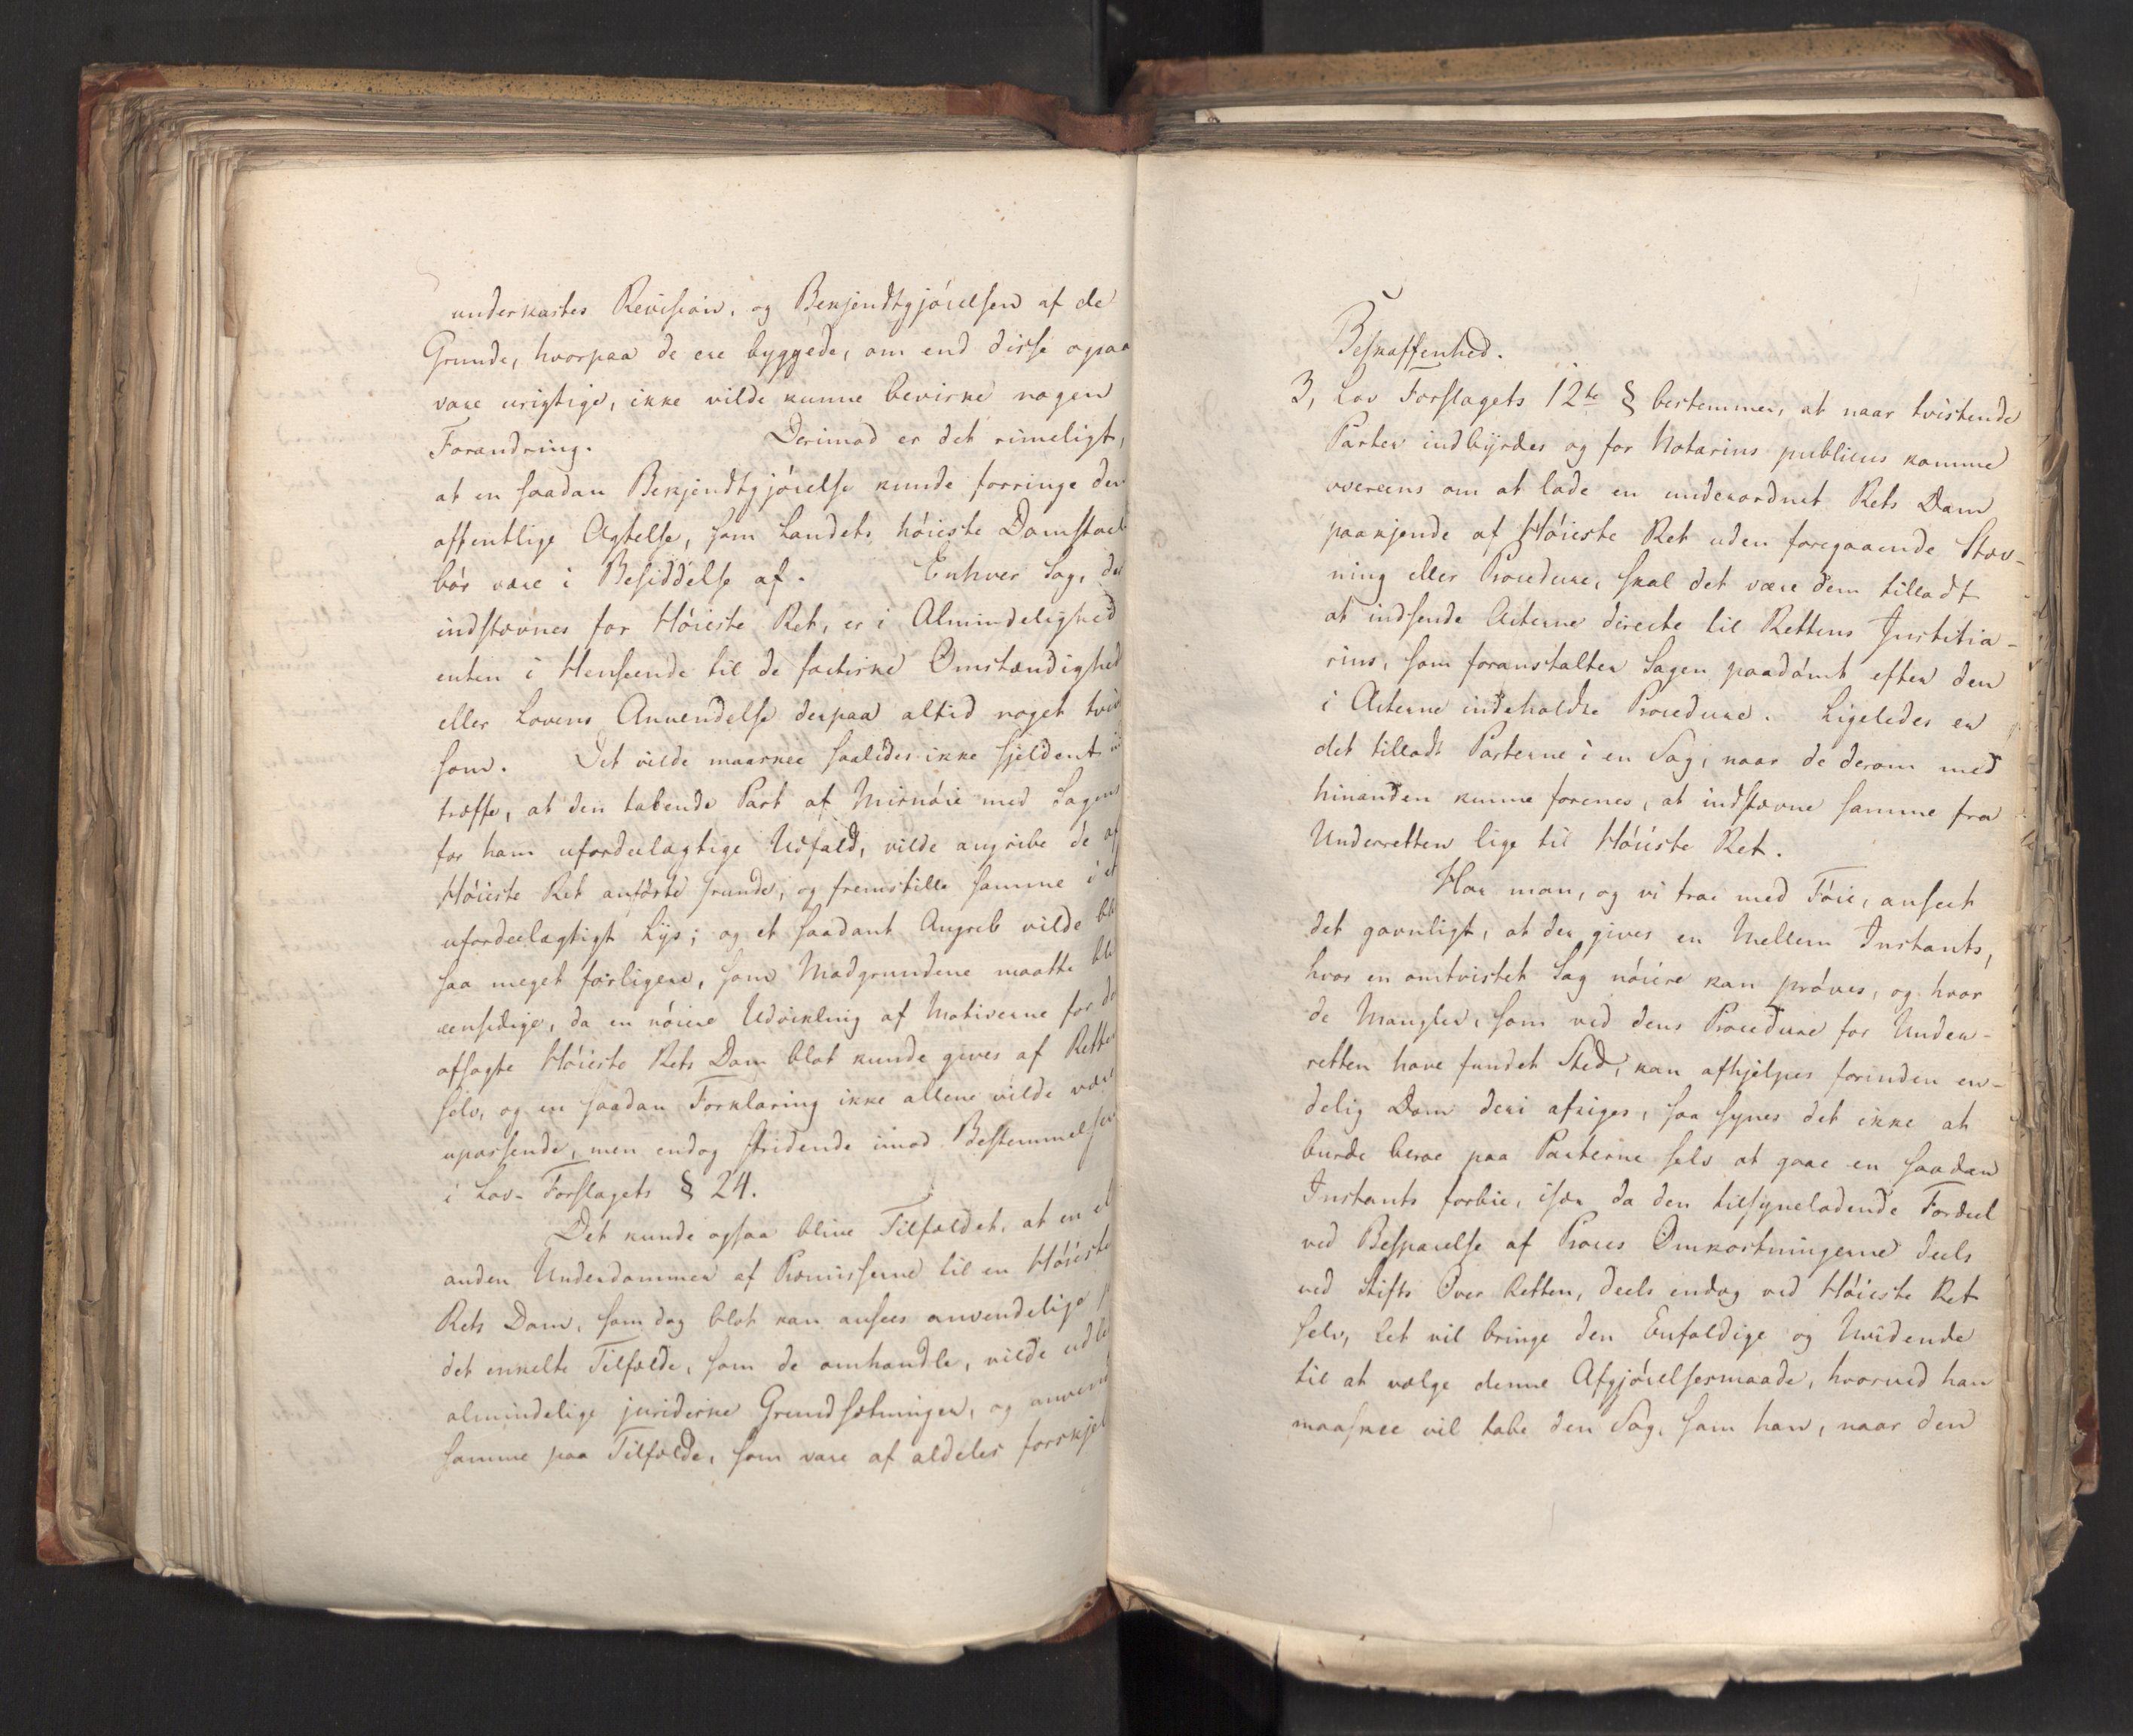 underkastes Revision, og Bekjendtgjörelsen af de
Grunde, hvorpaa de ere byggede, om end disse ogsaa
vare urigtige, ikke vilde kunne bevirke nogen
Forandring. Derimod er det rimeligt,
at en saadan Bekjendtgjörelse kunde forringe den
offentlige Agtelse, som Landets höieste Domstoel
bör være i Besiddelse af. Enhver Sag, der
indstævnes for Höieste Ret, er i Almindelighed
enten i Henseende til de factiske Omstændighed
eller Lovens Anvendelse derpaa altid noget tvivl
som. Det vilde maaskee saaledes ikke sjeldent ind
træffe, at den tabende Part af Misnöie med Sagens
for ham ufordeelagtige Udfald, vilde angribe de af
Höieste Ret anförte Grunde, og fremstille samme i et
ufordeelagtigt Lys; og et saadant Angreb vilde bli
saa meget farligere, som Modgrundene maatte bli
eensidige, da en nöiere Udvikling af Motiverne for de
afsagte Höieste Rets Dom blot kunde gives af Retten
selv, og en saadan Forklaring ikke allene vilde være
upassende, men endog stridende imod Bestemmelsen
i Lov-Forslagets § 24.
Det kunde ogsaa blive Tilfældet, at en el
anden Underdommer af Præmisserne til en Höieste
Rets Dom, som dog blot kan ansees anvendelige p
det enkelte Tilfælde, som de omhandle, vilde udle
almindelige juridiske Grundsætninger, og anvend
samme paa Tilfælde, som vare af aldeles forskjel
Beskaffenhed.
3, Lov Forslagets 12te § bestemmer, at naar tvistende
Parter indbyrdes og for Notarius publicus komme
overeens om at lade en underordnet Rets Dom
paakjende af Höieste Ret uden foregaaende Stæv-
ning eller Procedure, skal det være dem tilladt
at indsende Acterne directe til Rettens Justitia-
rius, som foranstalter Sagen paadömt efter den
i Acterne indeholdte Procedure. Ligeledes er
det tilladt Parterne i en Sag, naar de derom med
hinanden kunne forenes, at indstævne samme fra
Underretten lige til Höieste Ret.
Har man, og vi troe med Föie, anseet
det gavnligt, at der gives en Mellem Instants,
hvor en omtvistet Sag nöiere kan pröves, og hvor
de Mangler, som ved dens Procedure for Under-
retten have fundet Sted, kan afhjelpes forinden en-
delig Dom deri afsiges, saa synes det ikke at
burde beroe paa Parterne selv at gaae en saadan
Instants forbie, især da den tilsyneladende Fordeel
ved Besparelse af Proces Omkostningerne deels
ved Stifts Over Retten, deels endog ved Höieste Ret
selv, let vil bringe den Eenfoldige og Uvidende
til at vælge denne Afgjörelsesmaade, hvorved han
maaskee vil tabe den Sag, som han, naar den